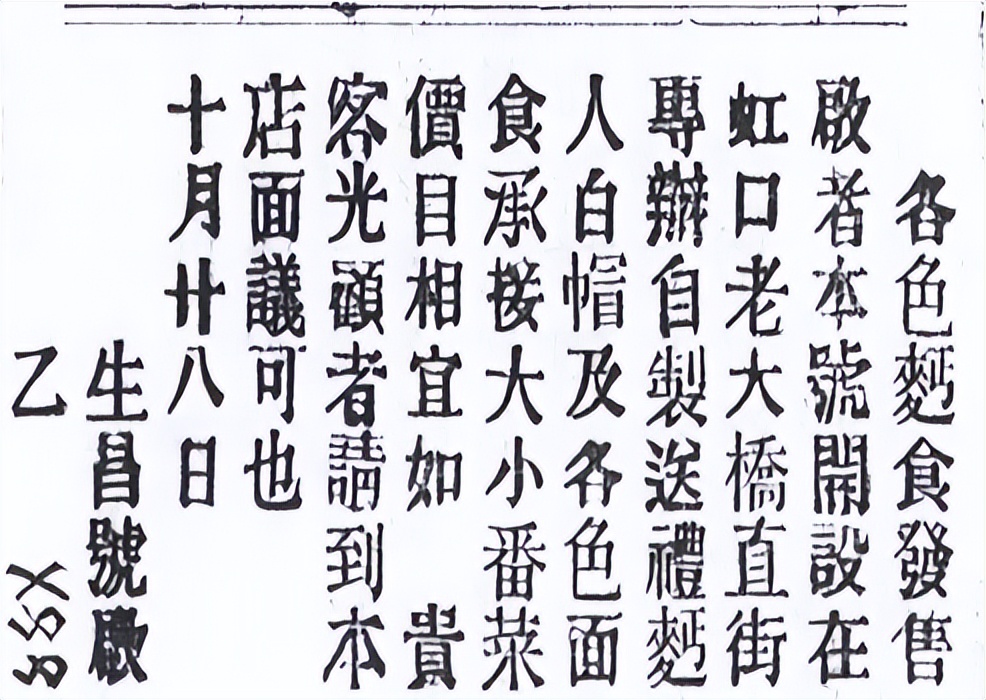 各色麪食發售
啟者本號開設在
虹口老大橋直街
專辦自製送禮麪
人白帽及各色面
食承接大小番菜
價目相宜如 貴
客光顧者請到本
店面議可也
十月廿八日
生昌號啟
乙